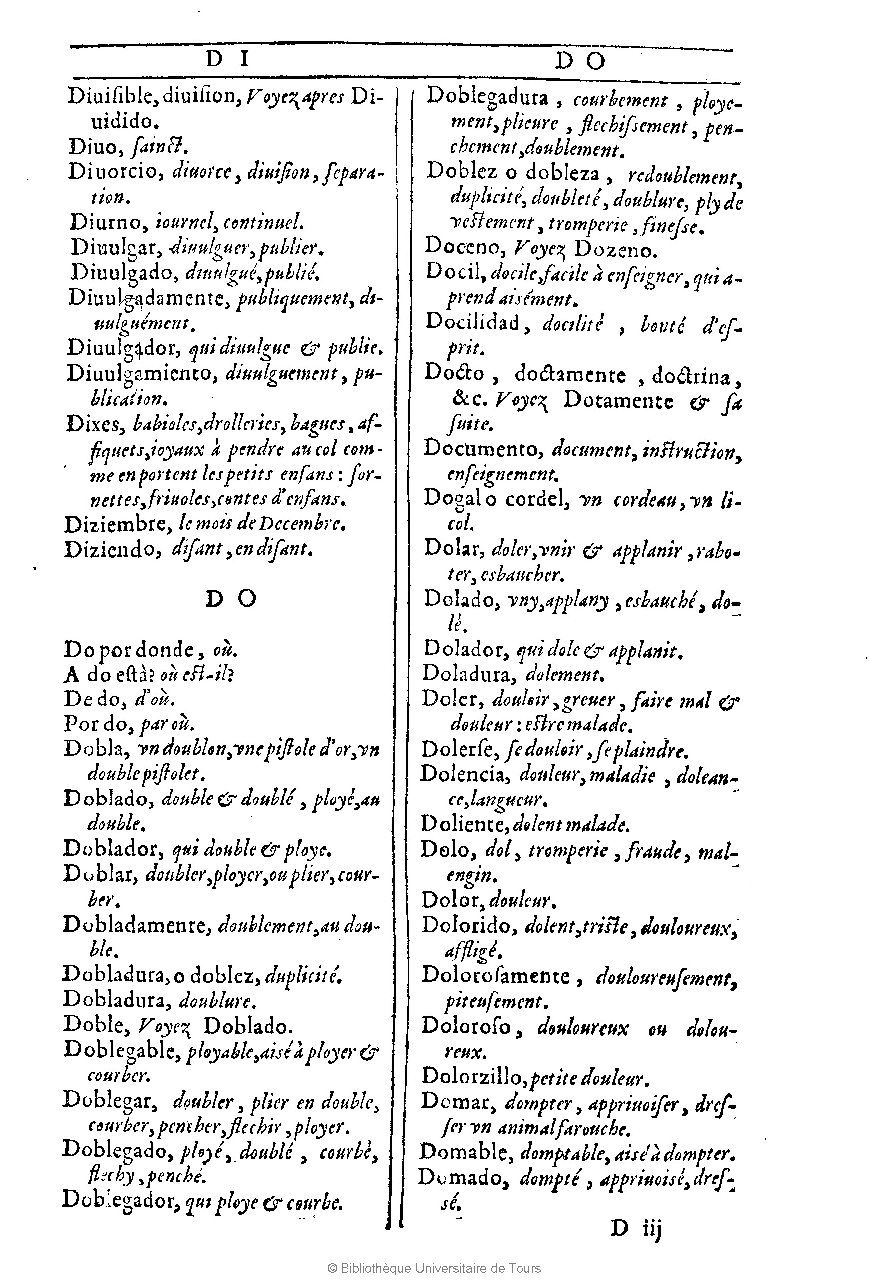 D I
Diuiſible, diuiſion, Voyez apres Di-
uidido.
Diuo, ſainct.
Diuorcio, diuorce, diuiſion, ſepara-
tion.
Diurno, iournel, continuel.
Diuulgar, diuulguer, publier.
Diuulgado, diuulgué, publié.
Diuulgadamente, publiquement, di-
uulguément.
Diuulgador, qui diuulgue & publie.
Diuulgamiento, diuulguement, pu-
blication.
Dixes, babioles, drolleries, bagues, af-
fiquets, ioyaux à pendre au col com-
me en portent les petits enfans : ſor-
nettes, friuoles, contes d'enfans.
Diziembre, le mois de Decembre.
Diziendo, diſant, en diſant.
D O
Do por donde, où.
A do eſtà? où eſt-il?
De do, d'où.
Por do, par où.
Dobla, vn doublon, vne piſtole d'or, vn
double piſtolet.
Doblado, double & doublé, ployé, au
double.
Doblador, qui double & ploye.
Doblar, doubler, ployer, ou plier, cour-
ber.
Dobladamente, doublement, au dou-
ble.
Dobladura, o doblez, duplicité.
Dobladura, doublure.
Doble, Voyez Doblado.
Doblegable, ployable, aisé à ployer &
courber.
Doblegar, doubler, plier en double,
courber, pencher, flechir, ployer.
Doblegado, ployé, doublé, courbé,
flechy, penché.
Doblegador, qui ploye & courbe.
D O
Doblegadura, courbement, ploye-
ment, plieure, flechiſsement, pen-
chement, doublement.
Doblez o dobleza, redoublement,
duplicité, doubleté, doublure, ply de
veſtement, tromperie, fineſse.
Doceno, Voyez Dozeno.
Docil, docile, facile à enſeigner, qui a-
prend aisément.
Docilidad, docilité, bonté d'eſ-
prit.
Docto, doctamente, doctrina,
&c. Voyez Dotamente & ſa
ſuite.
Documento, document, inſtruction,
enſeignement.
Dogal o cordel, vn cordeau, vn li-
col.
Dolar, doler, vnir & applanir, rabo-
ter, esbaucher.
Dolado, vny, applany, esbauché, do-
lé.
Dolador, qui dole & applanit.
Doladura, dolement.
Doler, douloir, greuer, faire mal &
douleur : eſtre malade.
Dolerſe, ſe douloir, ſe plaindre.
Dolencia, douleur, maladie, dolean-
ce, langueur.
Doliente, dolent malade.
Dolo, dol, tromperie, fraude, mal-
engin.
Dolor, douleur.
Dolorido, dolent, triſte, douloureux,
affligé.
Doloroſamente, douloureuſement,
piteuſement.
Doloroſo, douloureux ou dolou-
reux.
Dolorzillo, petite douleur.
Domar, dompter, appriuoiſer, dreſ-
ſer vn animal farouche.
Domable, domptable, aisé à dompter.
Domado, dompté, appriuoisé, dreſ-
sé.
D iij
© Bibliothèque Universitaire de Tours